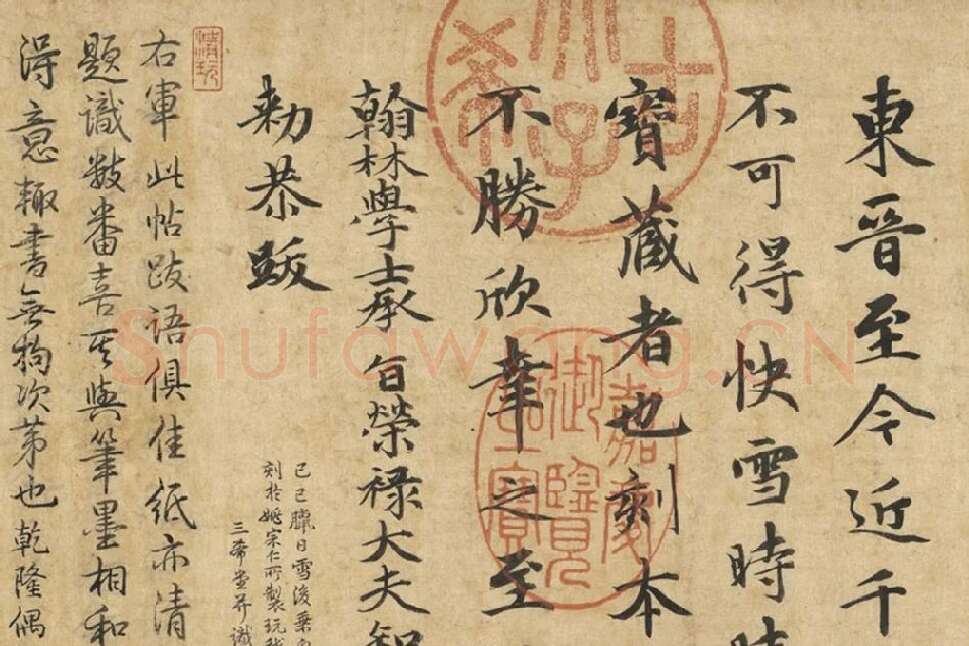 東晉至今近千
不可得快雪時
寶藏者也刻本
不勝欣幸之至
翰林學士承旨榮祿大夫知
勑恭跋
己巳臘日雪後
刻於姚宗仁所製玩
三希堂并識
右軍此帖跋語俱佳紙亦清
題識數番喜其與筆墨相和
得意輒書無拘次第也乾隆偶
嘉慶御覽之寶
Shufawang.CN